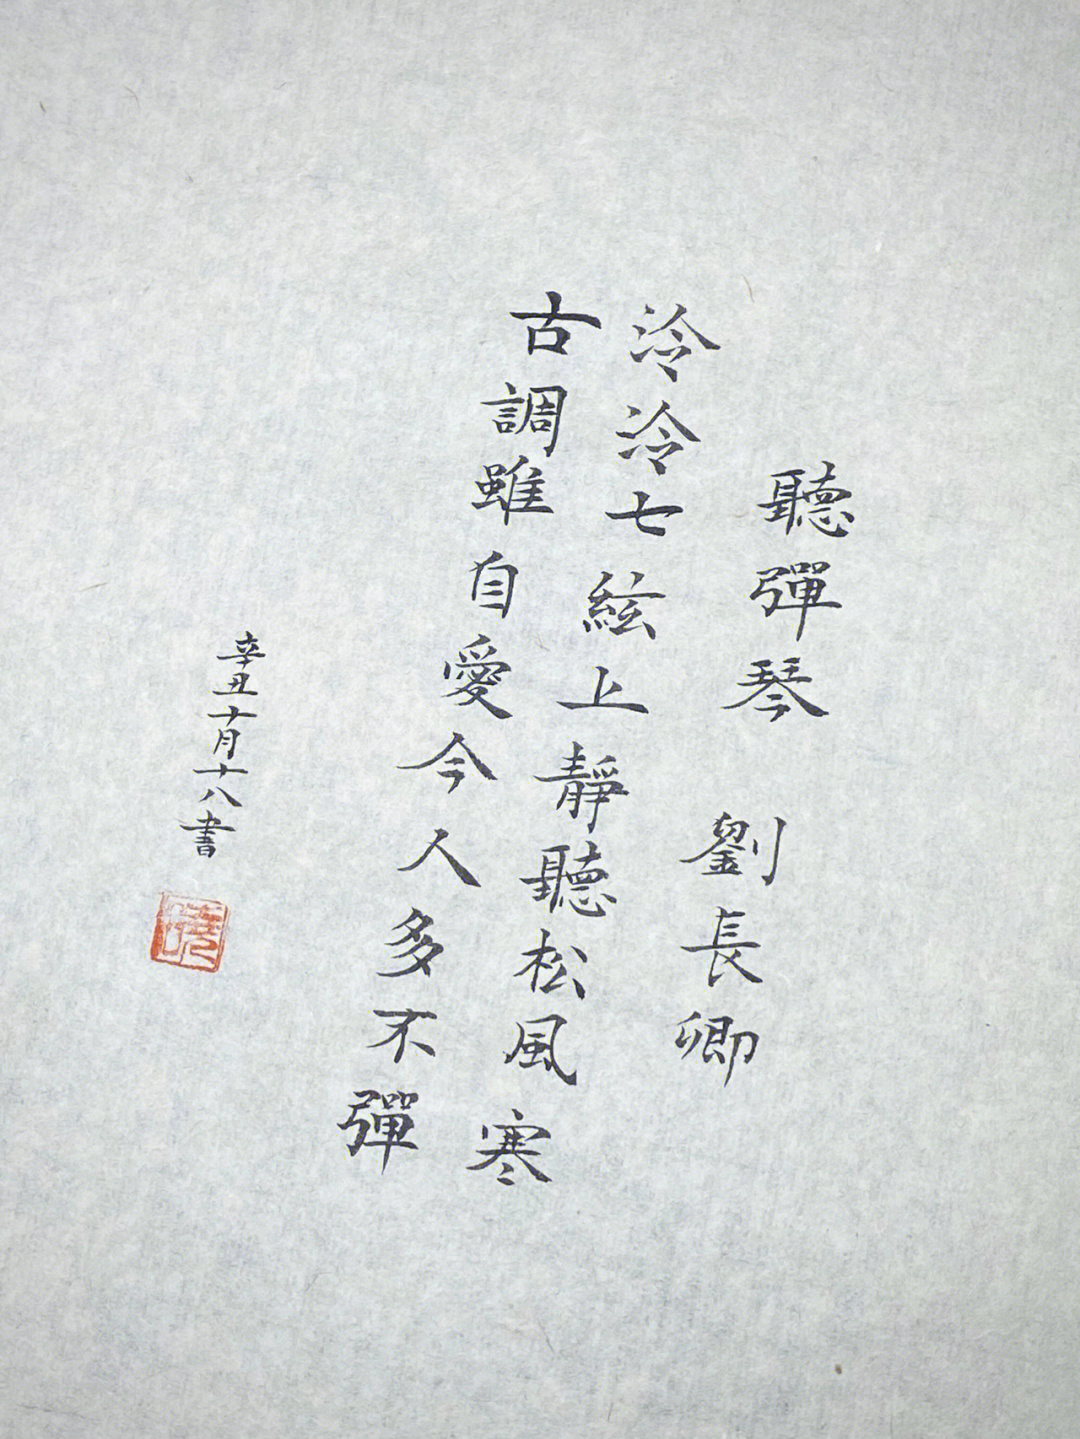 聽彈琴 劉長卿
泠泠七絃上靜聽松風寒
古調雖自愛今人多不彈
辛丑十月十八書